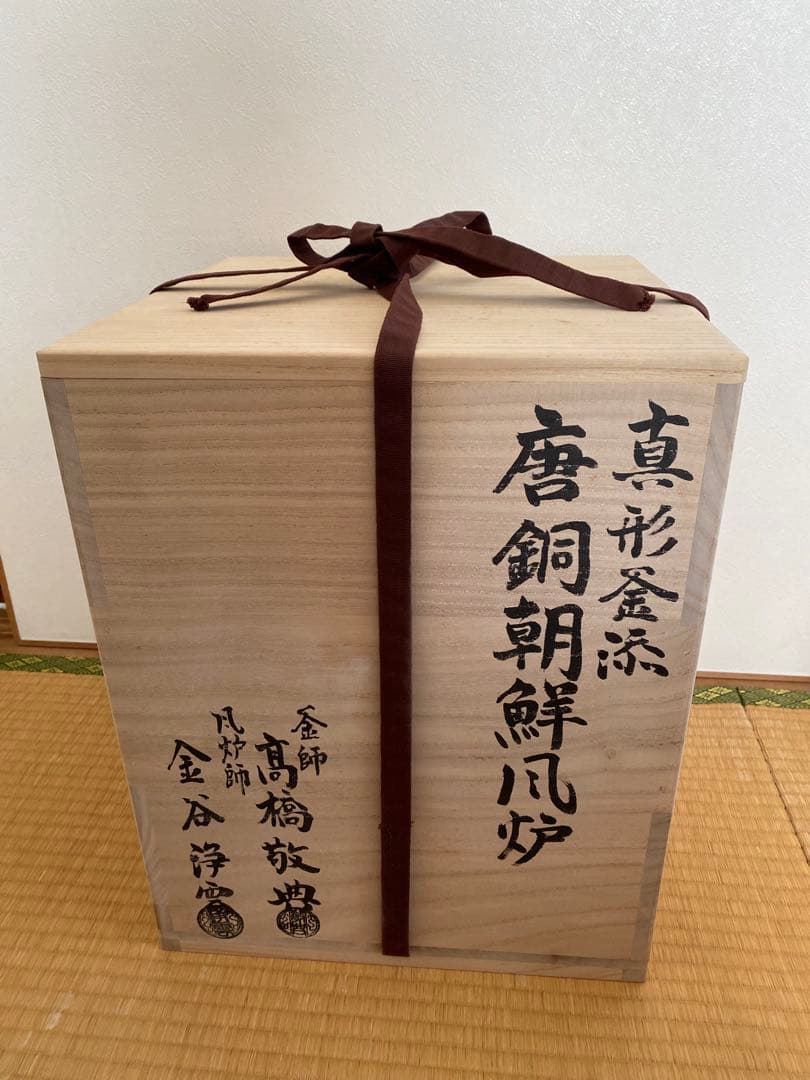 真形釜添
唐銅朝鮮風炉
釜師
高橋敬典
風炉師
金谷浄雲